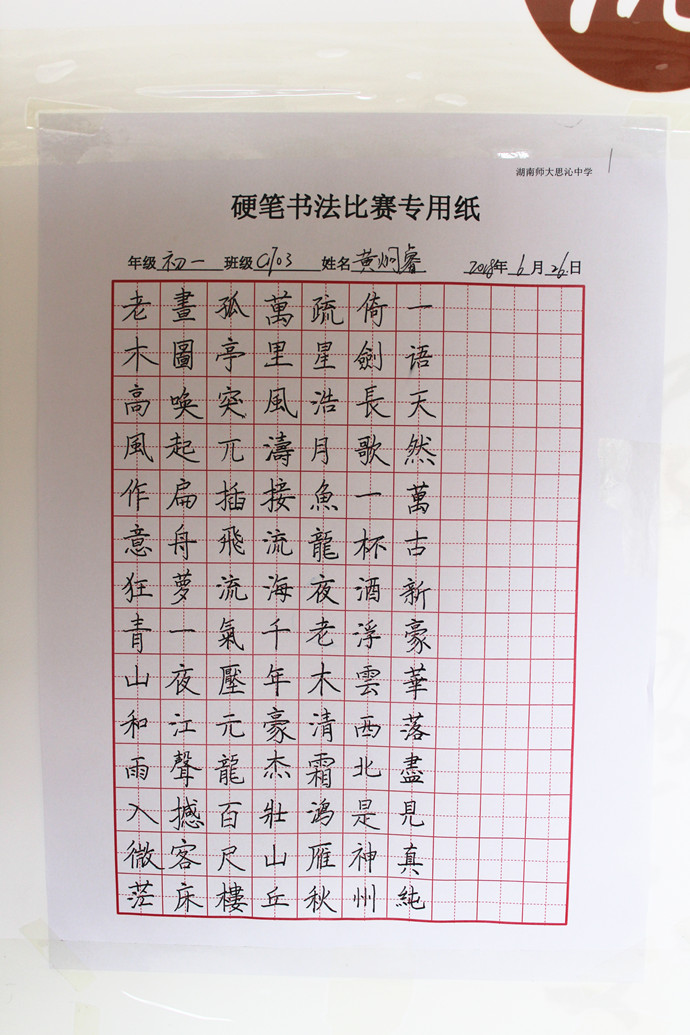 湖南师大思沁中学
硬笔书法比赛专用纸
年级 初一 班级 C1703 姓名 黄炯睿 2018年 6月 26日
老木高風作意狂青山和雨入微茫
畫圖喚起扁舟夢一夜江聲撼客床
孤亭突兀插飛流氣壓元龍百尺樓
萬里風濤接流海千年豪杰壯山丘
疏星浩月魚龍夜老木清霜鴻雁秋
倚劍長歌一杯酒浮雲西北是神州
一语天然萬古新豪華落盡見真純